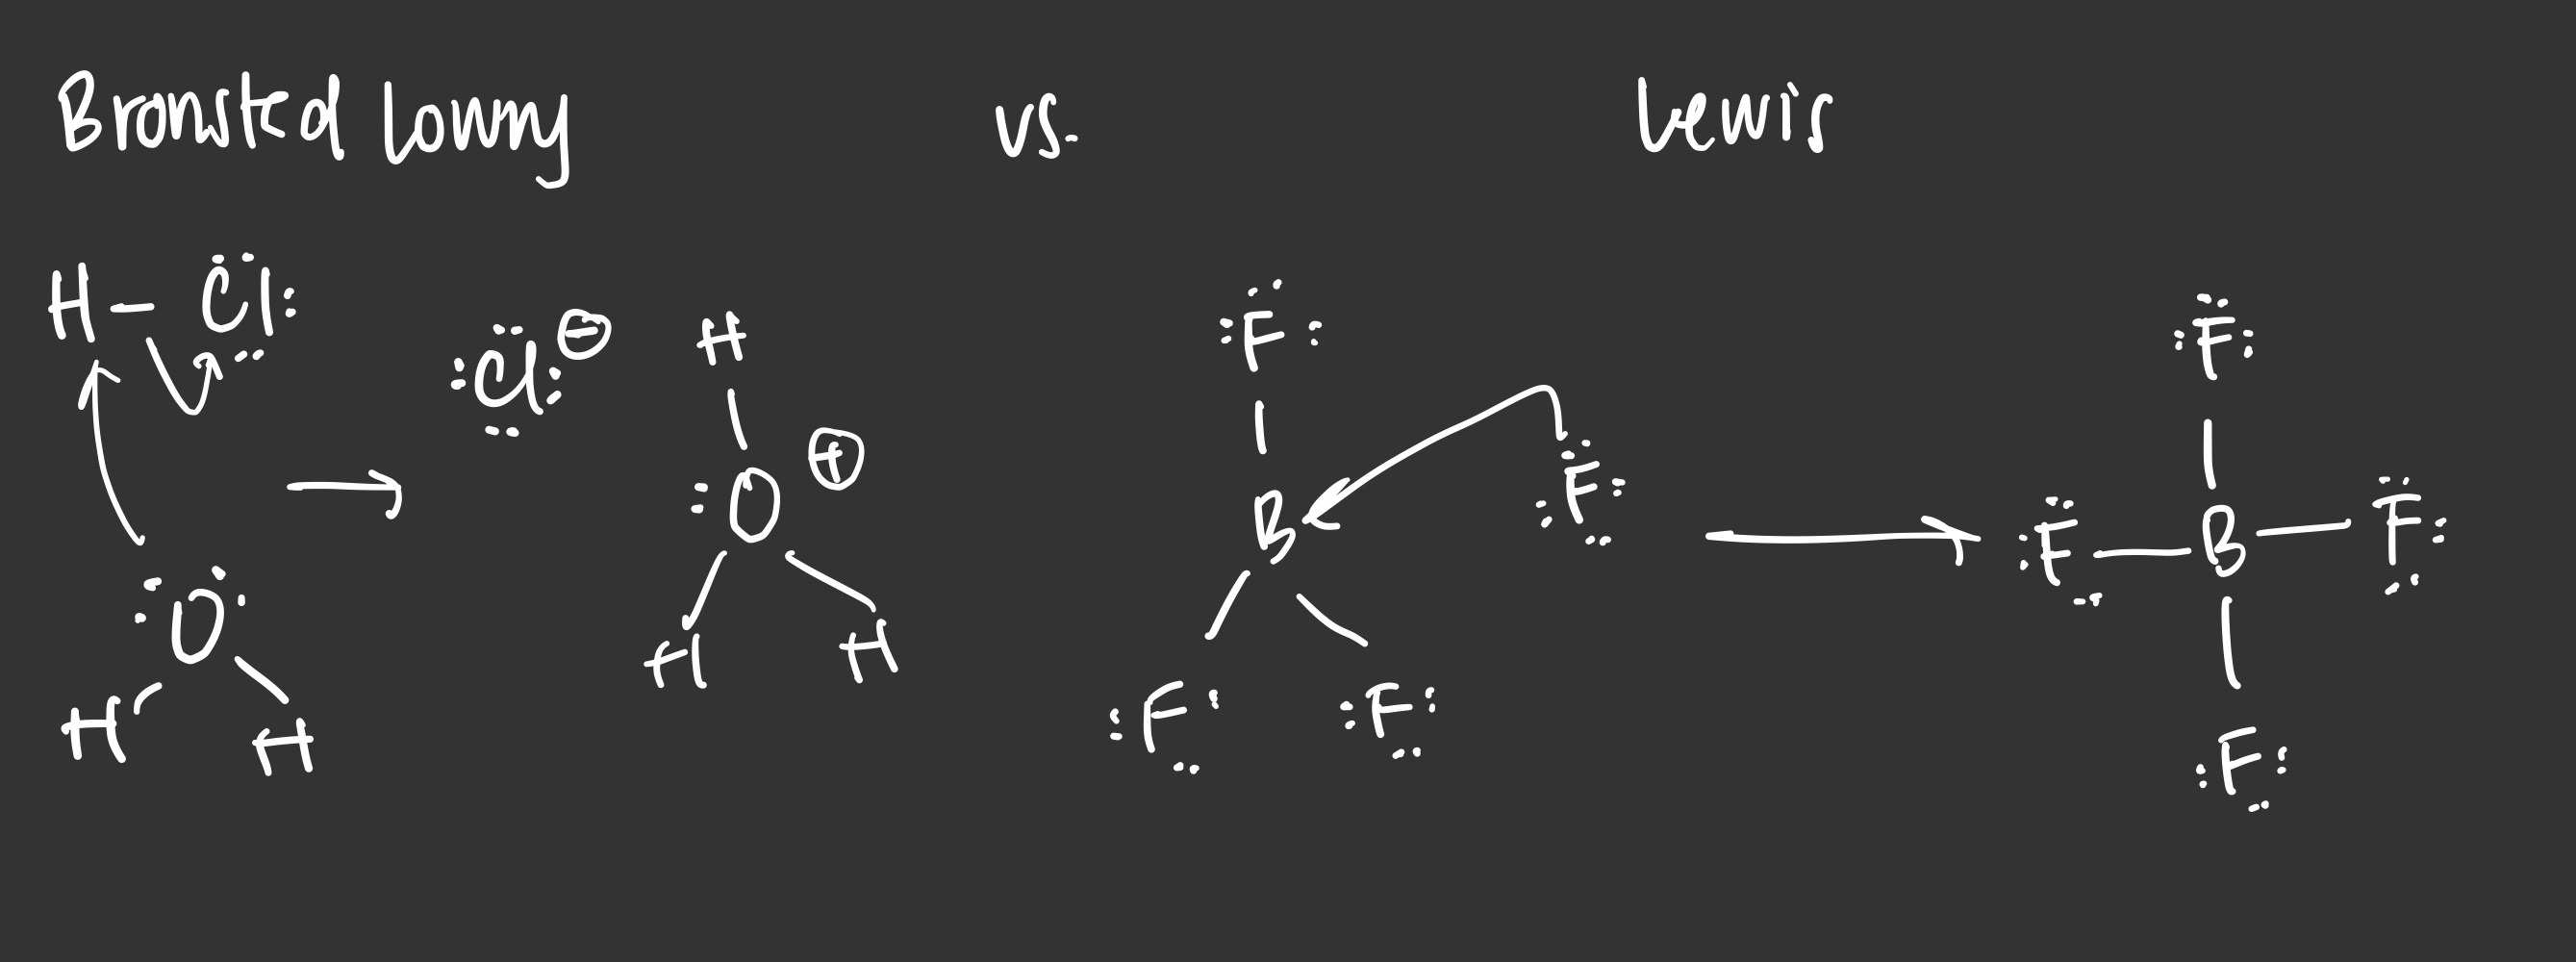 Bronsted Lowry vs. Lewis
H - Cl
Cl ⊖
H
O ⊕
H H
O
H H
F
B F
F F
F
F - B - F
F